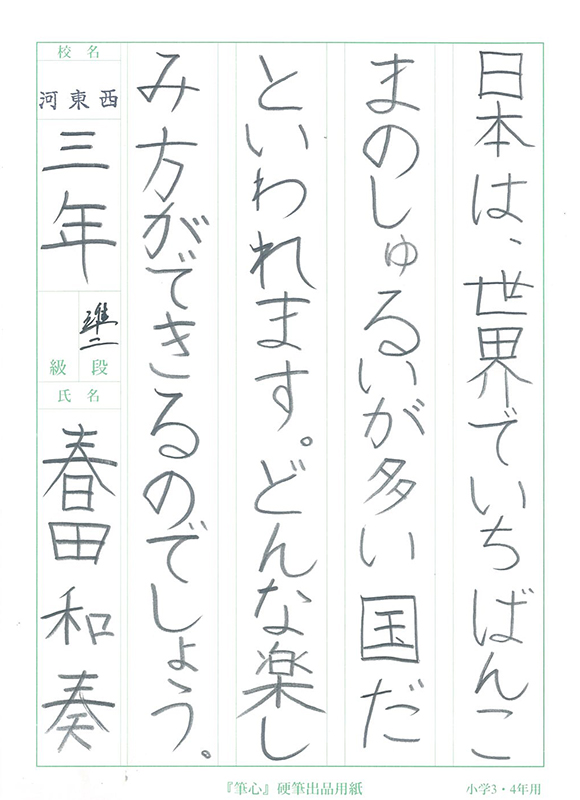 日本は、世界でいちばんこ
まのしゅるいが多い国だ
といわれます。どんな楽し
み方ができるのでしょう。
校名
河東西
三年
準二
級 段
氏名
春田和奏
『筆心』硬筆出品用紙
小学3・4年用